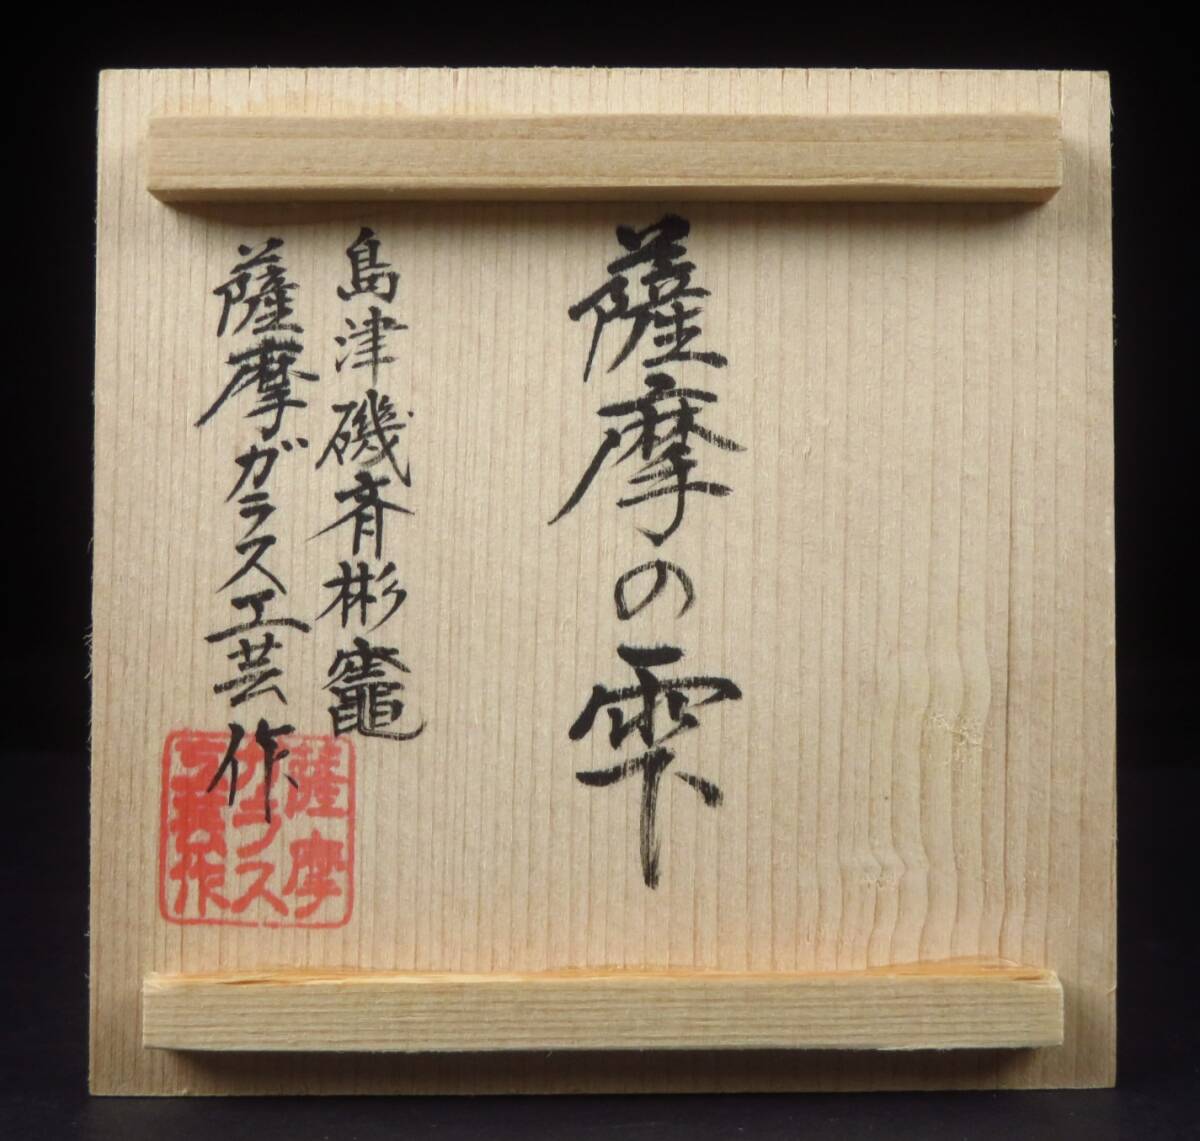 薩摩の雫
島津磯斉彬竈
薩摩ガラス工芸作
薩摩
ガラス